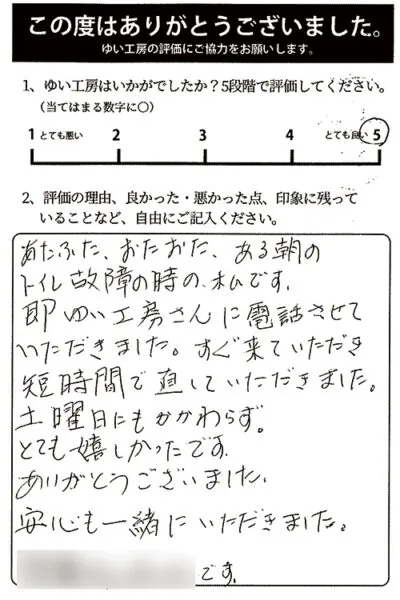 この度はありがとうございました。
ゆい工房の評価にご協力をお願いします。
1、ゆい工房はいかがでしたか？5段階で評価してください。
（当てはまる数字に○）
1 とても悪い 2 3 4 とても良い 5
2、評価の理由、良かった・悪かった点、印象に残って
いることなど、自由にご記入ください。
あたふた、おたおた、ある朝の
トイレ故障の時の、私です。
即ゆい工房さんに電話させて
いただきました。すぐ来ていただき
短時間で直していただきました。
土曜日にもかかわらず。
とても嬉しかったです。
ありがとうございました。
安心も一緒にいただきました。
です。